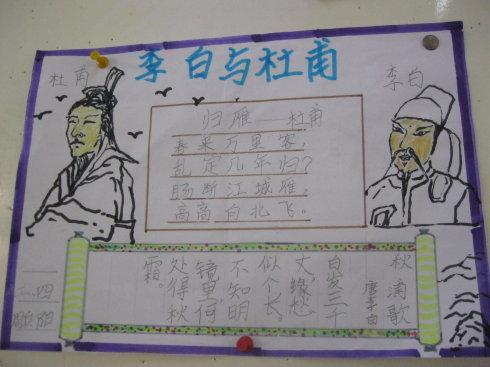 李白与杜甫
杜甫
李白
归雁——杜甫
春来万里客，
乱定几年归？
肠断江城雁，
高高向北飞。
秋浦歌
唐李白
白发三千
丈，缘愁
似个长。
不知明
镜里，何
处得秋
霜。